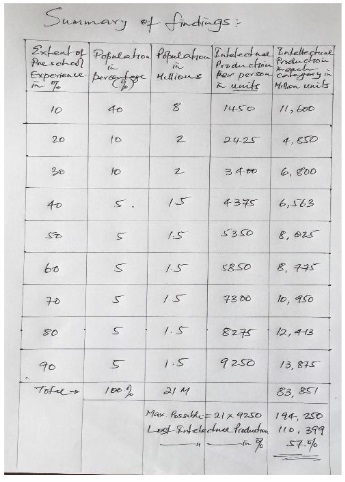 Summary of findings:-
Extent of Preschool Experience in % | Population in percentage (%) | Population in Millions | Intelectual Production per person in units | Intellectual Production in each category in Million units
10 | 40 | 8 | 1450 | 11,600
20 | 10 | 2 | 2425 | 4,850
30 | 10 | 2 | 3400 | 6,800
40 | 5. | 1.5 | 4375 | 6,563
50 | 5 | 1.5 | 5350 | 8,025
60 | 5 | 1.5 | 5850 | 8,775
70 | 5 | 1.5 | 7300 | 10,950
80 | 5 | 1.5 | 8275 | 12,413
90 | 5 | 1.5 | 9250 | 13,875
Total → | 100% | 21 M | 83,851
Max. Possible = 21 x 9250 194,250
Lost Intelectual Production 110,399
—— " —— " —— in % 57.%